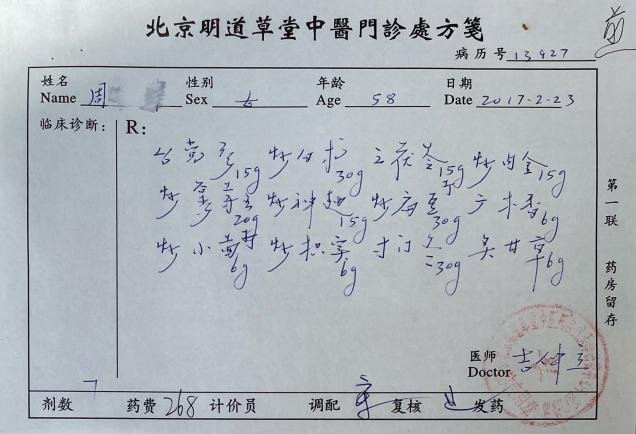 北京明道草堂中醫門診處方箋
病历号 13927
姓名 Name 周 性别 Sex 女 年龄 Age 58 日期 Date 2017-2-23
临床诊断: R:
台党参15g 炒白术30g 云茯苓15g 炒内金15g
炒莱菔子20g 炒神曲15g 炒扁豆30g 广木香6g
炒小茴6g 炒枳实6g 30g 炙甘草6g
第一联 药房留存
医师 Doctor
剂数 7 药费 268 计价员 调配 复核 发药